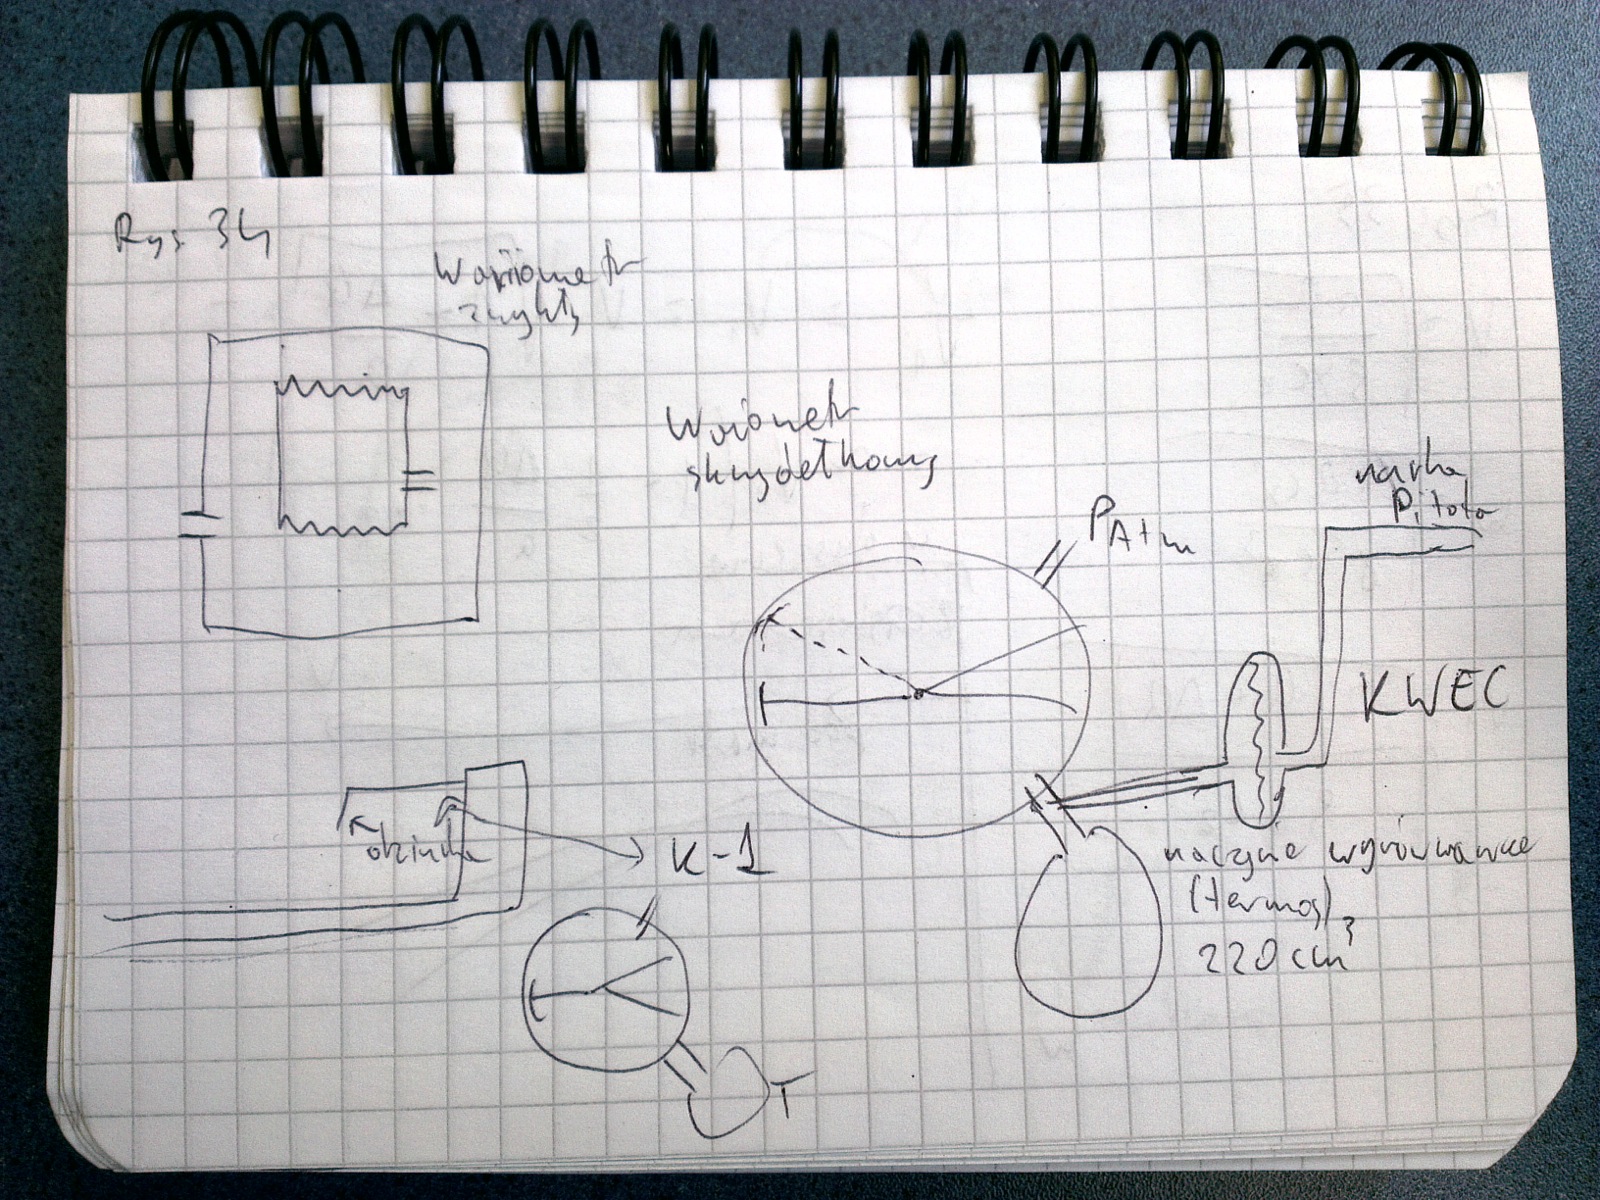 Rys 34
Wariometr
zwykły
Wariometr
skrzydełkowy
PAtm
rurka
Pitota
KWEC
K-1
naczynie wyrównawcze
(termos)
220 cm³
T